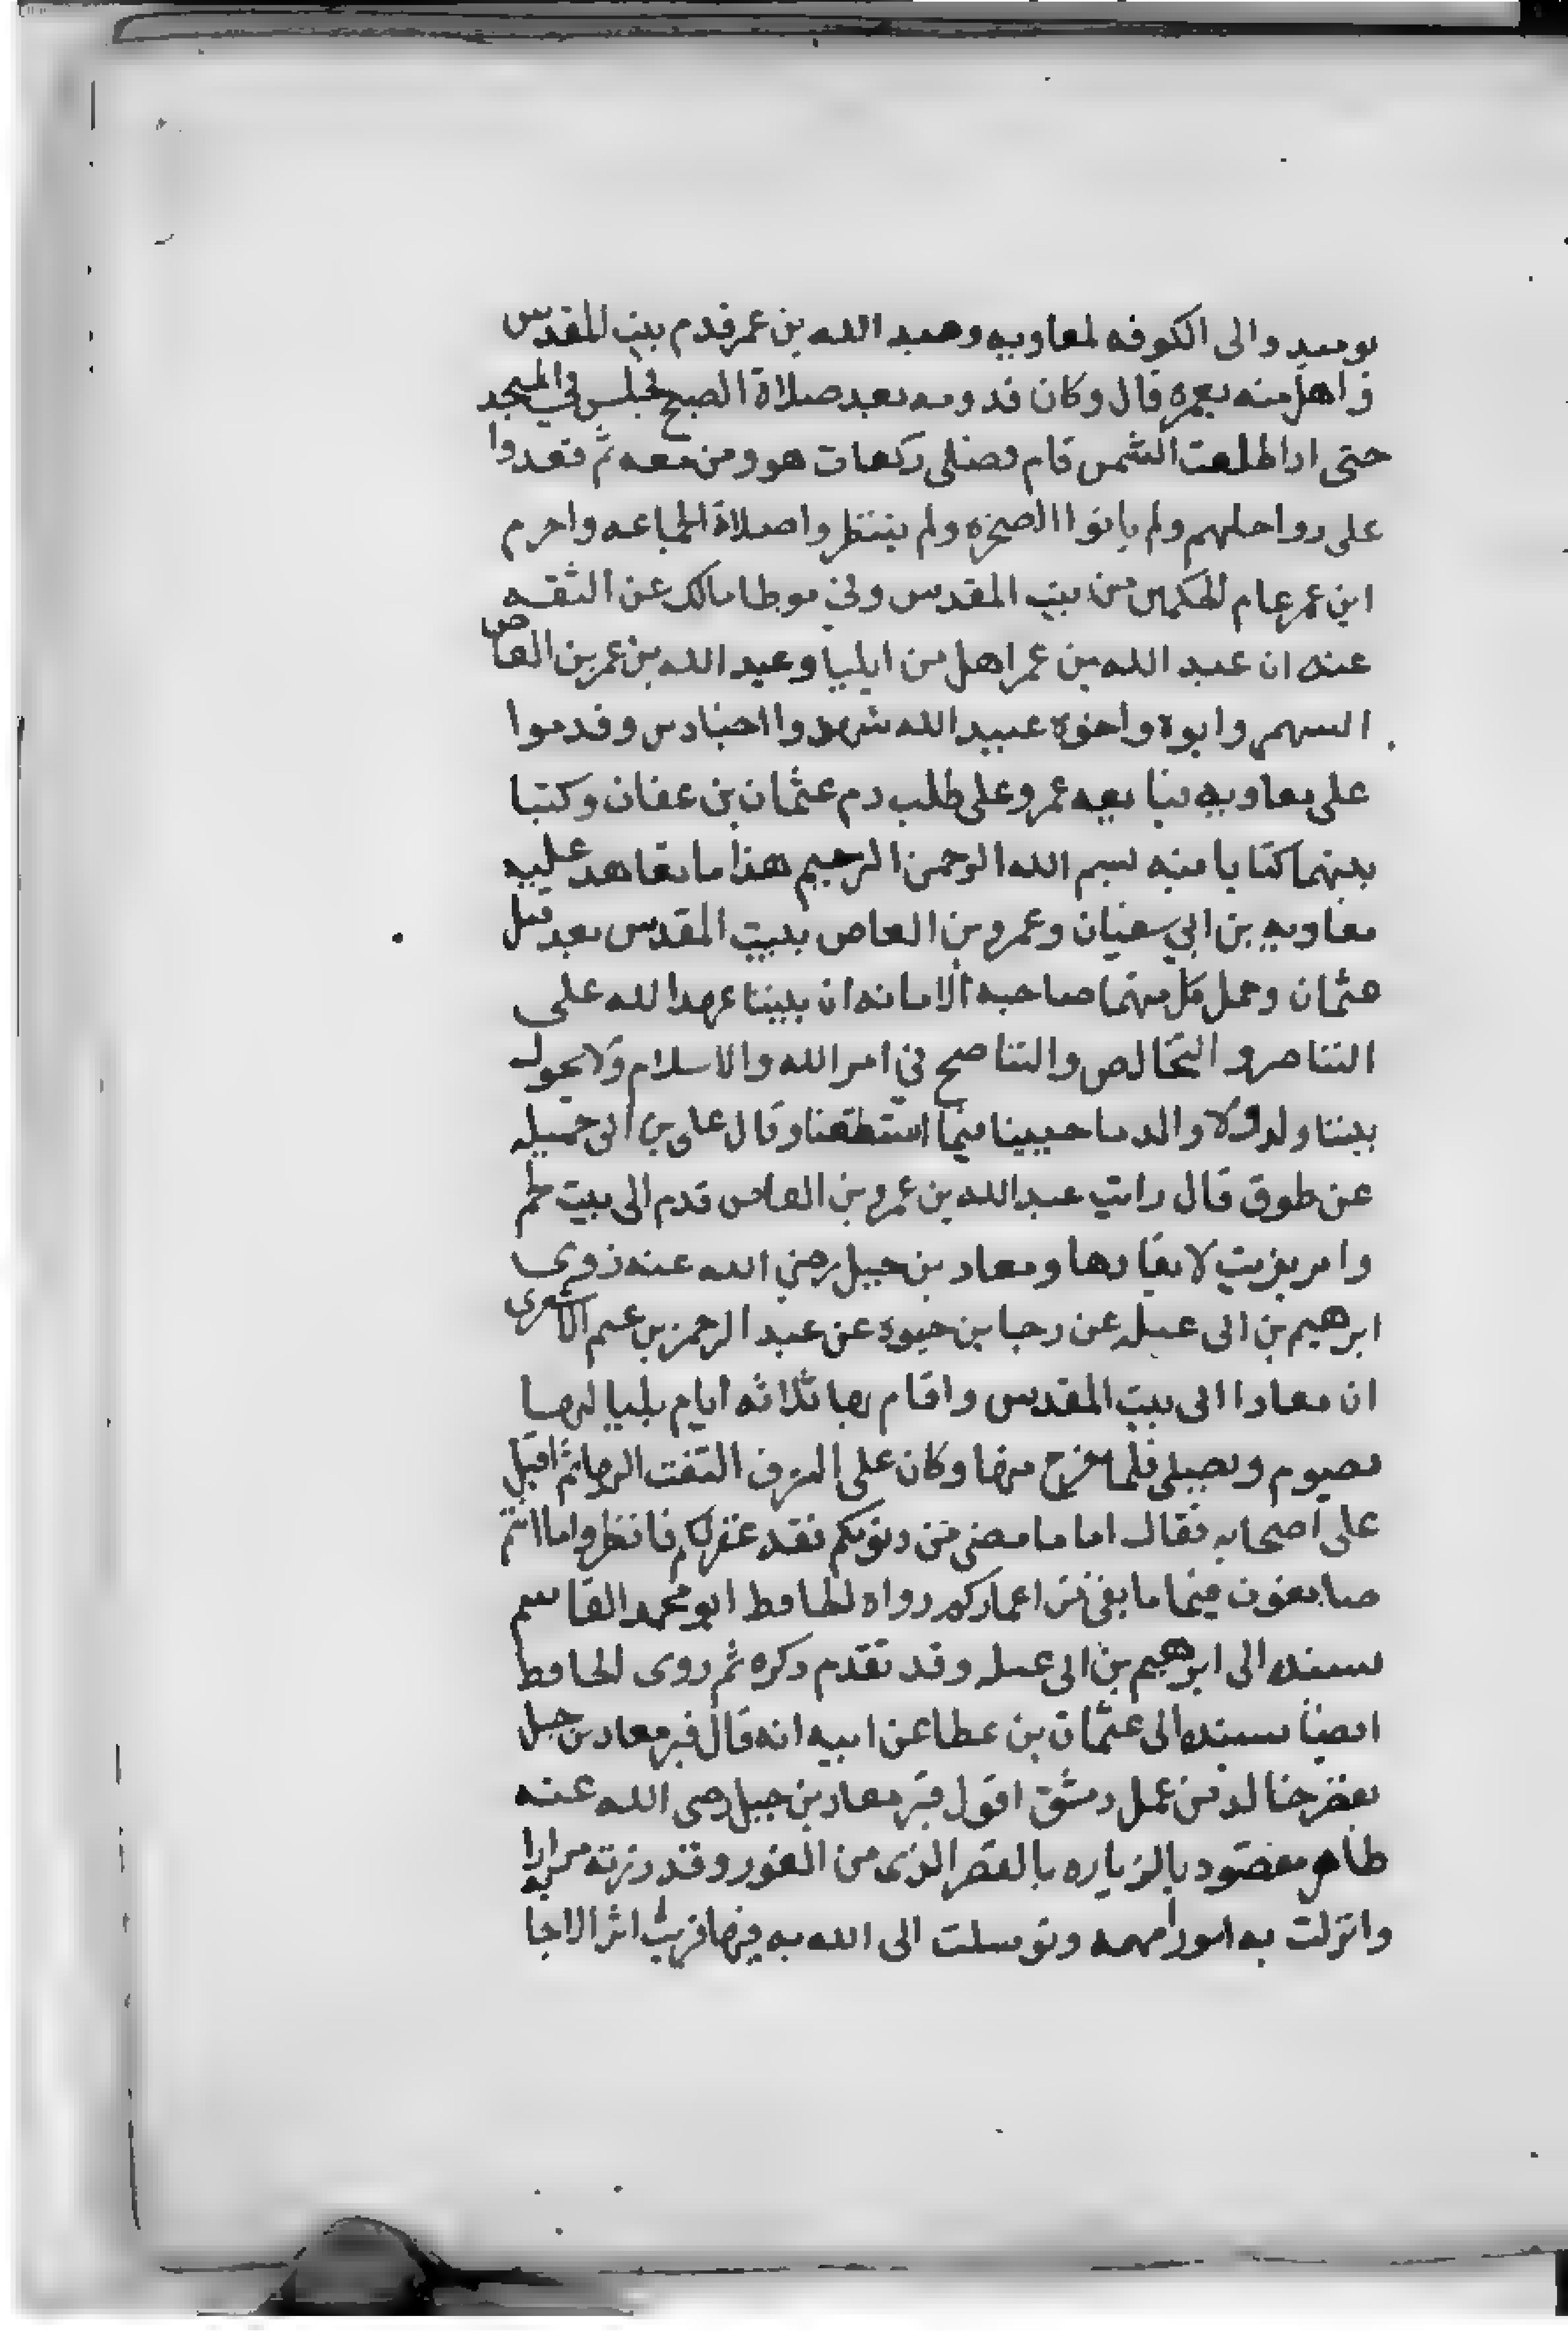 يوميد والى الكوفه لمعاويه وعبد الله بن عمر قدم بيت المقدس
واهل منه بعمره قال وكان قدومه بعد صلاة الصبح فجلس في المسجد
حتى ادا طلعت الشمس قام فصلى ركعات هو ومن معه ثم قعدوا
على رواحلهم ولم ياتوا الصخره ولم ينتظروا صلاة الجماعه واحرم
ابن عمر عام الحكمين من بيت المقدس وفي موطا مالك عن الثقه
عنده ان عبد الله بن عمر اهل من ايليا وعبد الله بن عمر بن العاص
السهمي وابوه واخوه عبيد الله شهدوا اجنادين وقدموا
على معاويه فبايعه عمرو على طلب دم عثمان بن عفان وكتبا
بينهما كتابا منه بسم الله الرحمن الرحيم هذا ما تعاهد عليه
معاويه بن ابي سفيان وعمرو بن العاص ببيت المقدس بعد قتل
عثمان وحمل كل منهما صاحبه الامانه ان بيننا عهد الله على
التناصر والتخالص والتناصح في امر الله والاسلام ولا يحول
بيننا ولد ولا والد ما حيينا فيما استطعنا وقال على بن ابى جميله
عن طوق قال رايت عبد الله بن عمرو بن العاص قدم الى بيت لحم
وامر بزيت لايقادها ومعاد بن جبل رضي الله عنه روى
ابرهيم بن ابى عبله عن رجا بن حيوة عن عبد الرحمن بن غنم الاشعرى
ان معادا اتى بيت المقدس واقام بها ثلاثه ايام بلياليها
يصوم ويصلى فلما خرج منها وكان على الشرف التفت اليها ثم اقبل
على اصحابه فقال اما ما مضى من ذنوبكم فقد غفر لكم فانظروا ما انتم
صانعون فيما بقى من اعماركم رواه الحافظ ابو محمد القاسم
بسنده الى ابرهيم بن ابى عبله وقد تقدم دكره ثم روى الحافظ
ايضا بسنده الى عثمان بن عطا عن ابيه انه قال قبر معاد بن جبل
من عمل دمشق اقول قبر معاد بن جبل رضى الله عنه
ظاهر مقصود بالزياره بالقصر الذى من الغور وقد زرته مرارا
وانزلت به امورا مهمه وتوسلت الى الله به فيها فرايت اثر الاجا